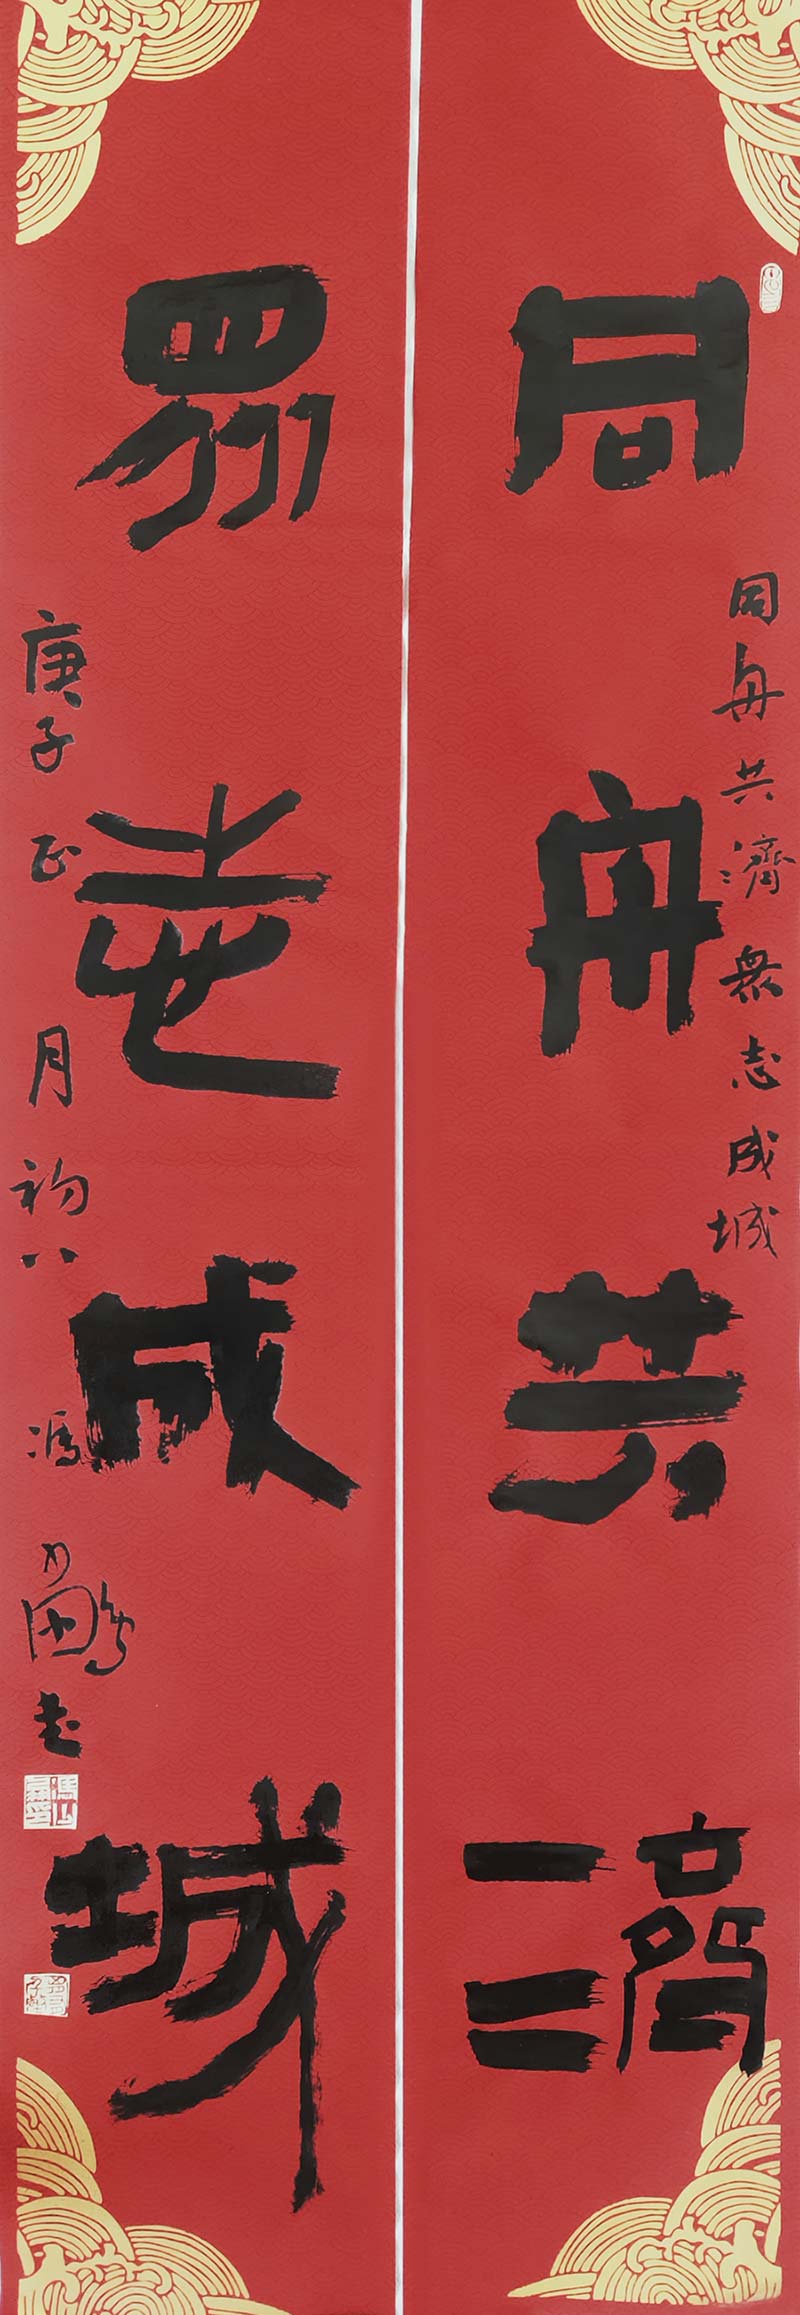 同舟共濟
同舟共濟衆志成城
眾志成城
庚子正月初八馮
書